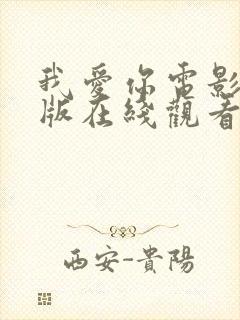 我愛你電影
版在綫觀看
西安-貴陽